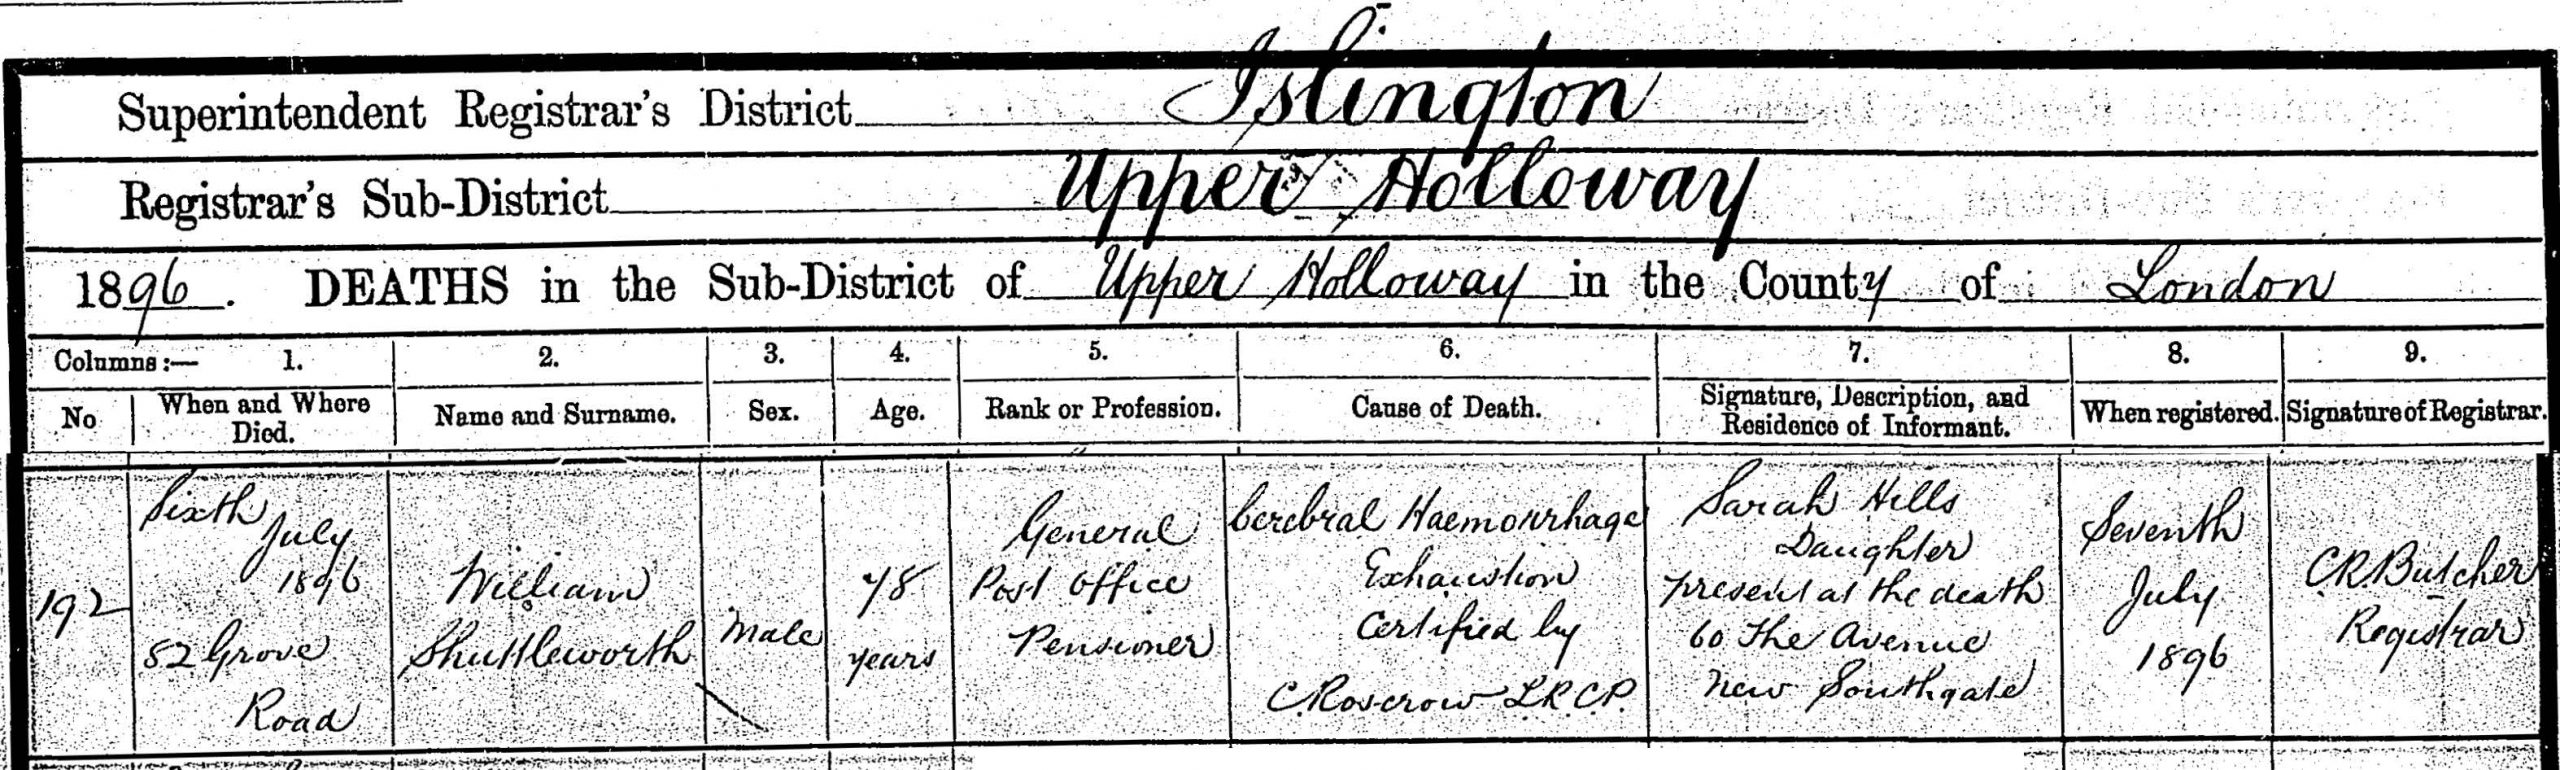 Superintendent Registrar's District Islington
Registrar's Sub-District Upper Holloway
1896. DEATHS in the Sub-District of Upper Holloway in the County of London
Columns:— 1. 2. 3. 4. 5. 6. 7. 8. 9.
No
When and Where
Died.
Name and Surname.
Sex.
Age.
Rank or Profession.
Cause of Death.
Signature, Description, and
Residence of Informant.
When registered.
Signature of Registrar.
192
Sixth
July
1896
52 Grove
Road
William
Shuttleworth
Male
78
years
General
Post Office
Pensioner
Cerebral Haemorrhage
Exhaustion
Certified by
C. Roscrow L.R.C.P.
Sarah Hills
Daughter
present at the death
60 The Avenue
New Southgate
Seventh
July
1896
C R Butcher
Registrar